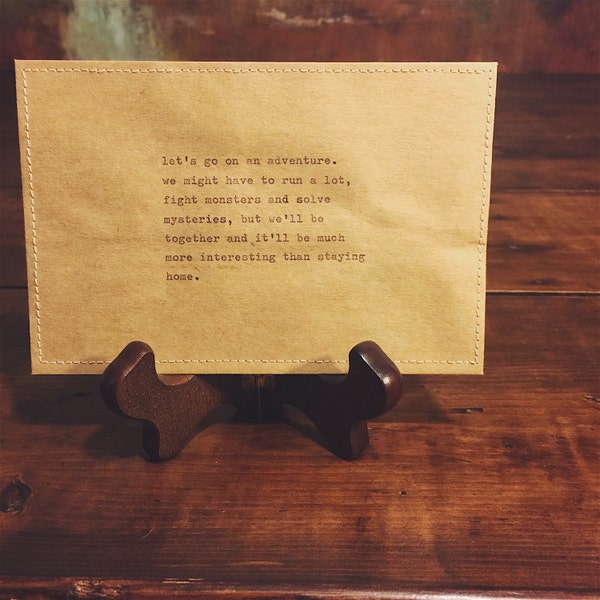 let's go on an adventure.
we might have to run a lot,
fight monsters and solve
mysteries, but we'll be
together and it'll be much
more interesting than staying
home.